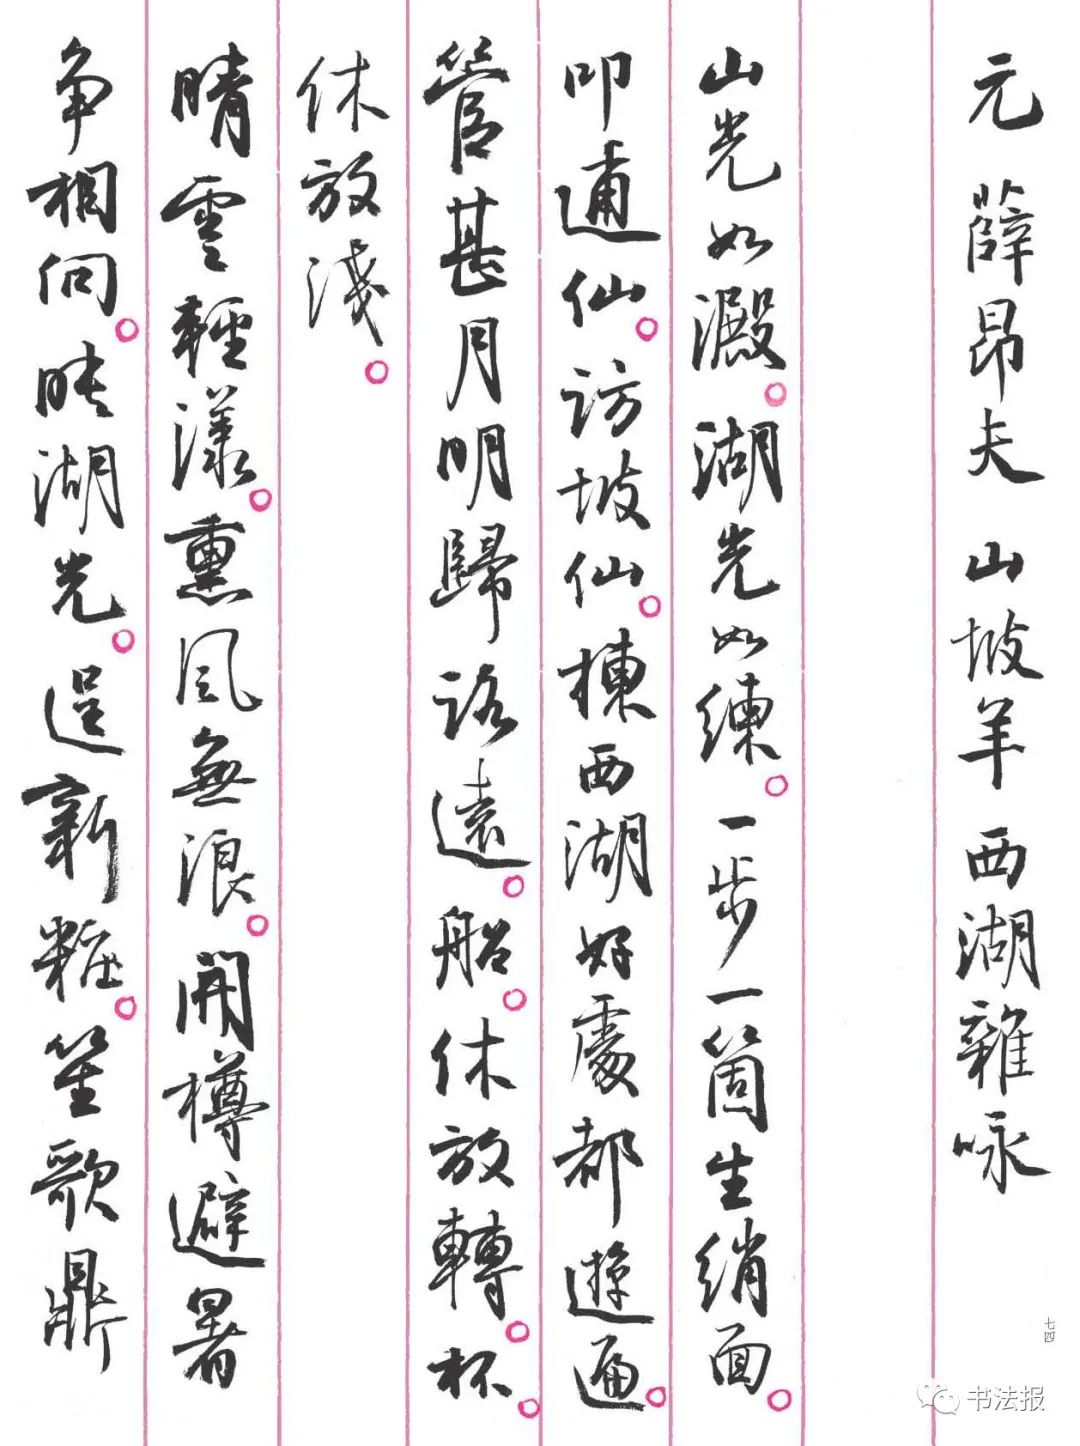 元 薛昂夫 山坡羊 西湖雜咏
山光如澱。湖光如練。一步一箇生綃面。
叩逋仙。訪坡仙。揀西湖好處都遊遍。
管甚月明歸路遠。船。休放轉。杯。
休放淺。
晴雲輕漾。熏風無浪。開樽避暑
争相向。映湖光。逞新粧。笙歌鼎
七四
书法报